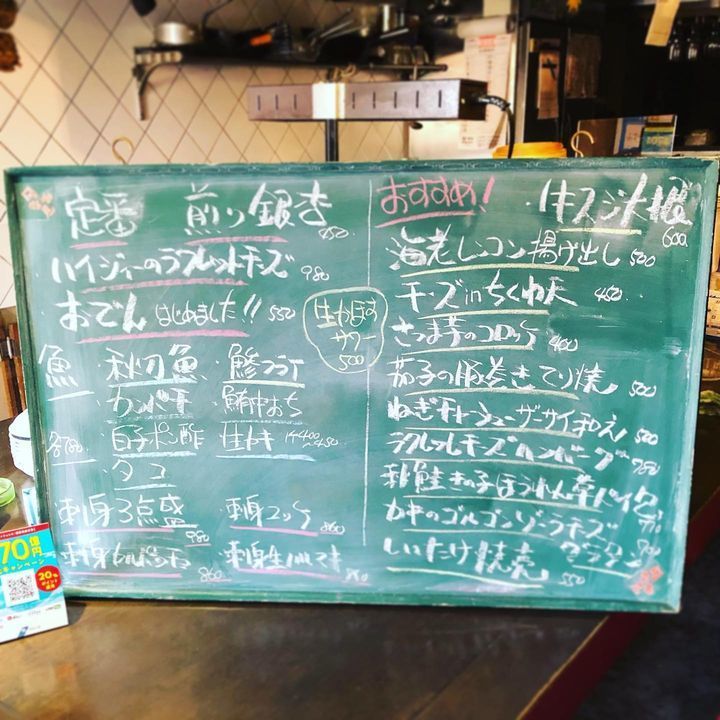 定番 煎り銀杏 450
ハイジィーのラクレットチーズ 980
おでん はじめました!! 550
生かぼす
サワー
500
魚 秋刀魚・鯵フライ
カンパチ 鮪中おち
各780 白子ポン酢 生ガキ 1ケ400〜450
・タコ
・刺身3点盛 980 ・刺身ユッケ 860
・刺身カルパッチョ 860 ・刺身生ハム
おすすめ! ・牛スジ大根 600
海老レンコン揚げ出し 500
チーズinちくわ天 450
さつま芋のコロッケ 400
茄子の豚巻きてり焼 500
ねぎチャーシューザーサイ和え 500
ラクレットチーズハンバーグ 980
秋鮭きの子ほうれん草パイ
カキのゴルゴンゾーラチーズ
グラタン
しいたけ焼売 550
70億円
20%
ポイント